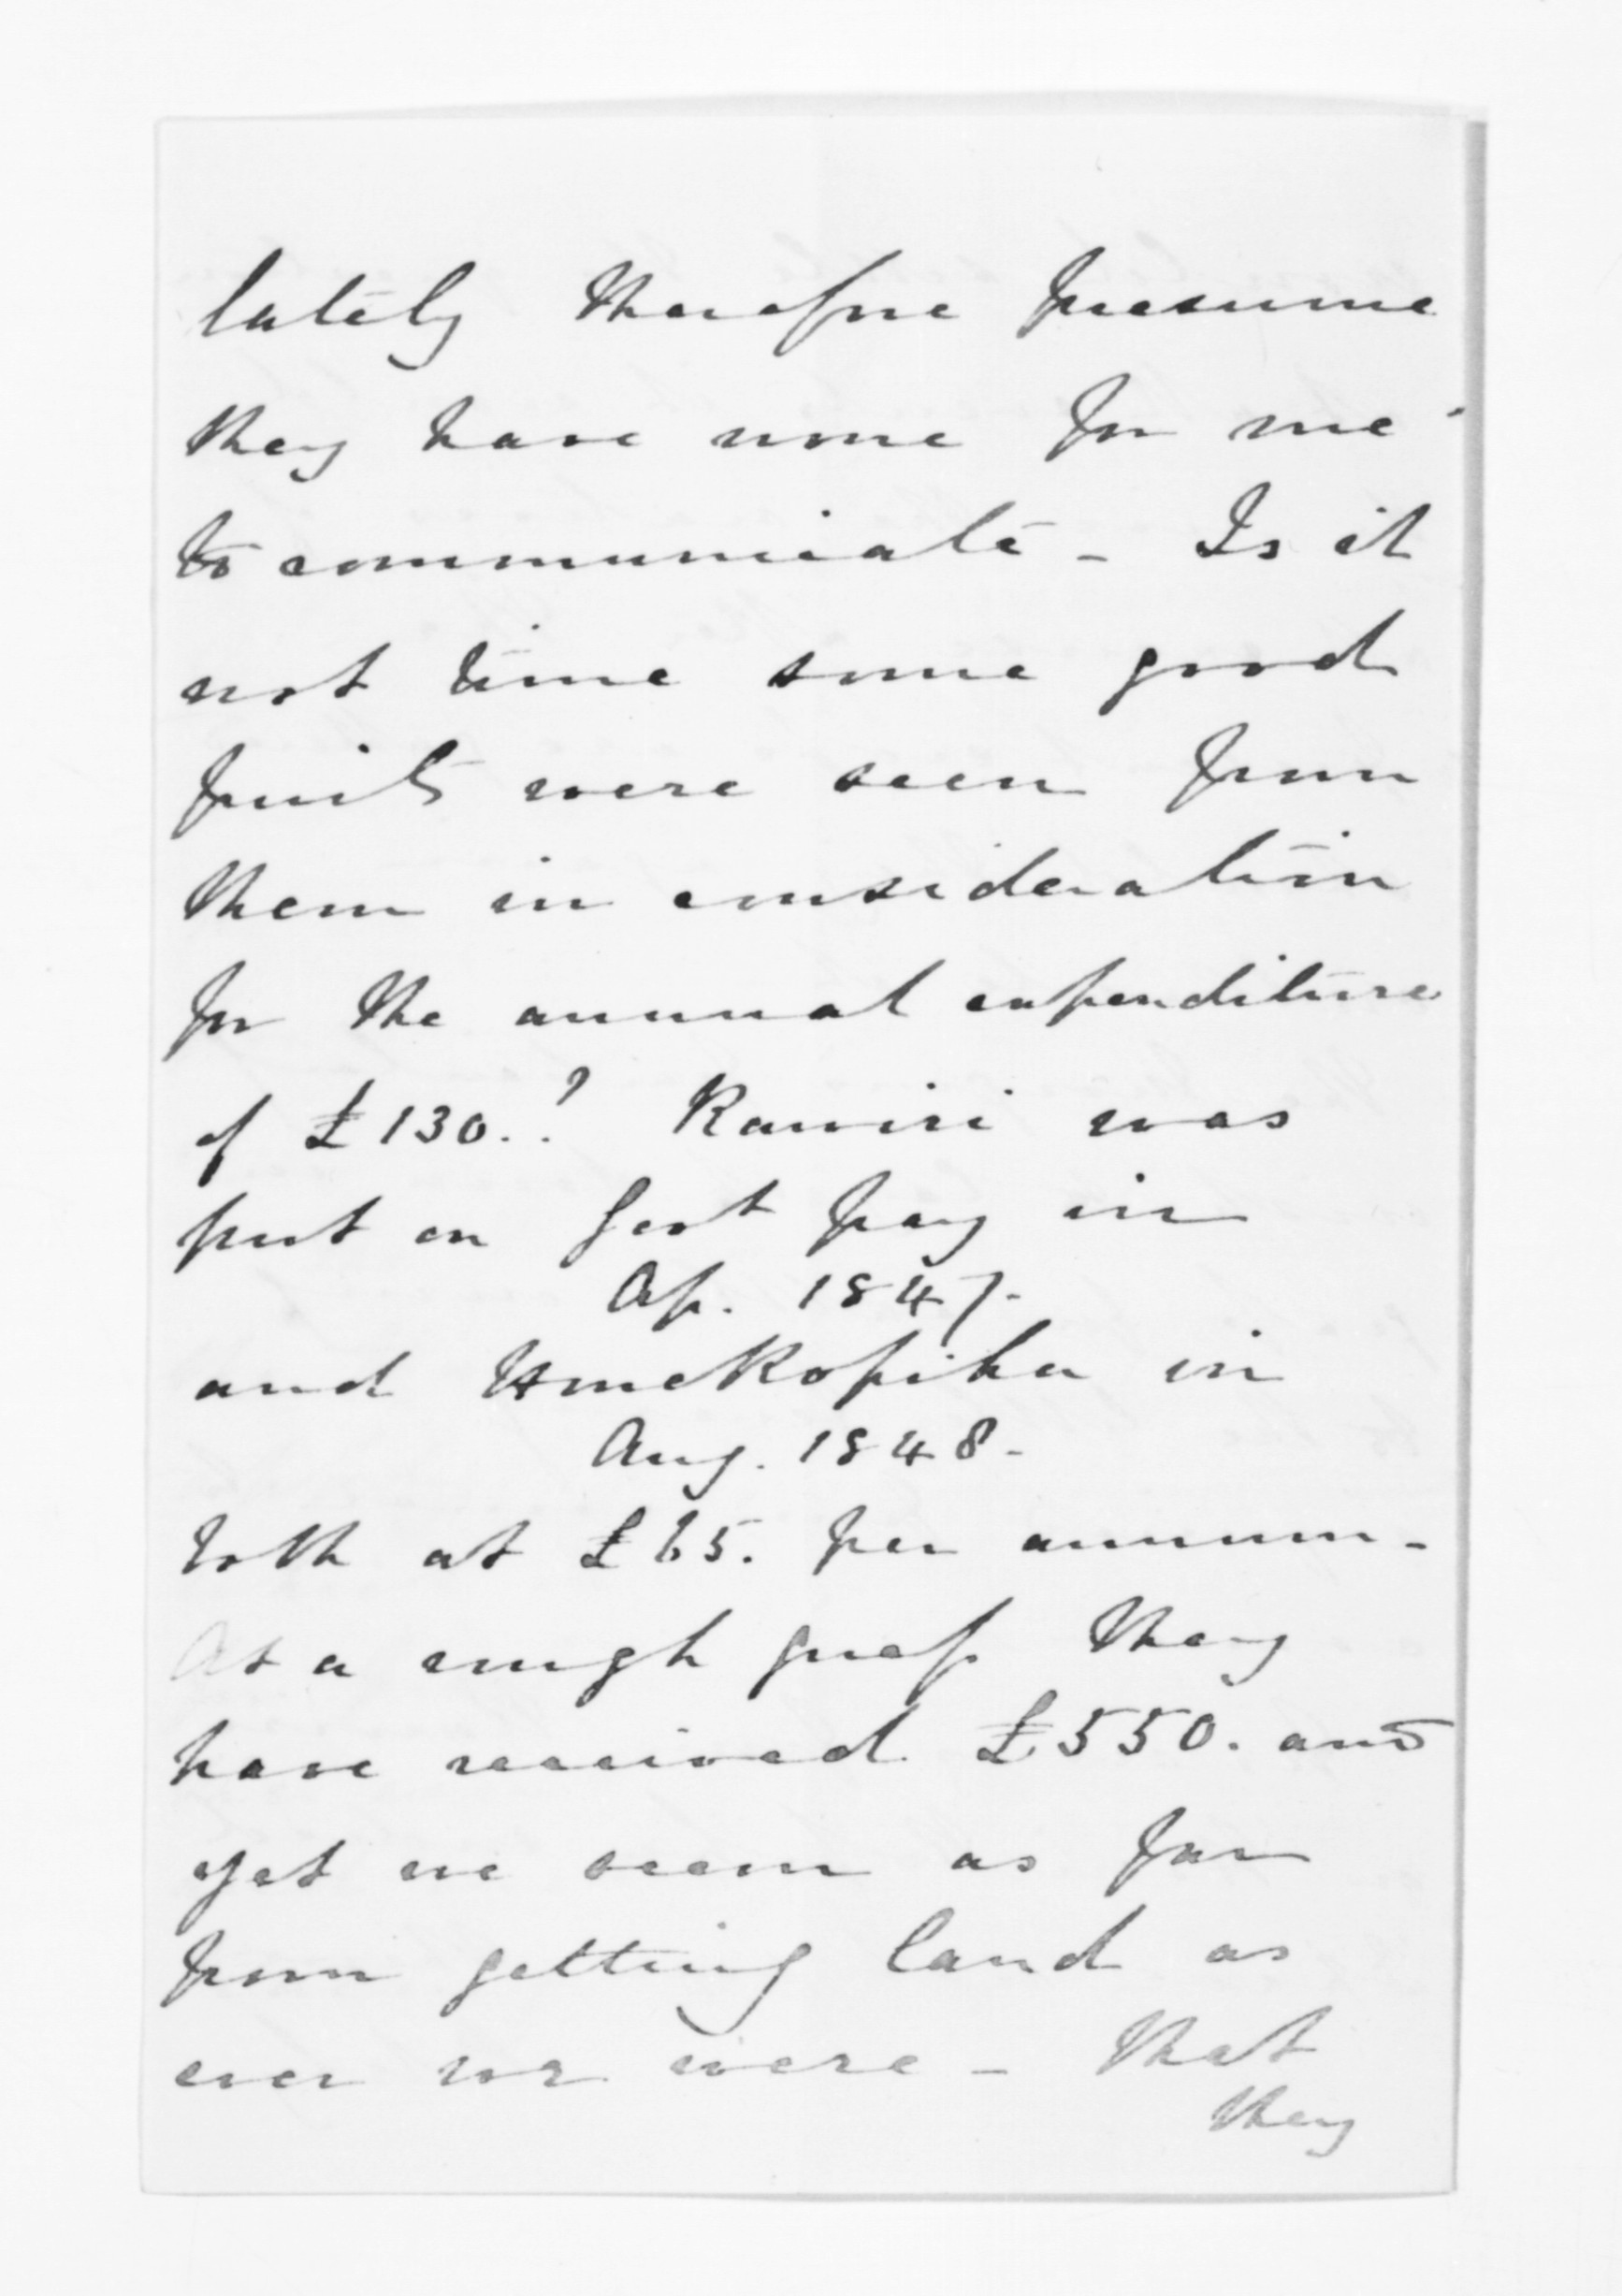 lately therefore presume
they have none for me
to communicate - Is it
not time some good
fruits were seen from
them in consideration
for the annual expenditure
of £130.? Rawiri was
put on Govt pay in
Ap. 1847.
and Umekopiha in
Aug. 1848 -
both at £65. per annum -
At a rough guess they
have received £550. and
yet we seem as far
from getting land as
ever we were - That
they